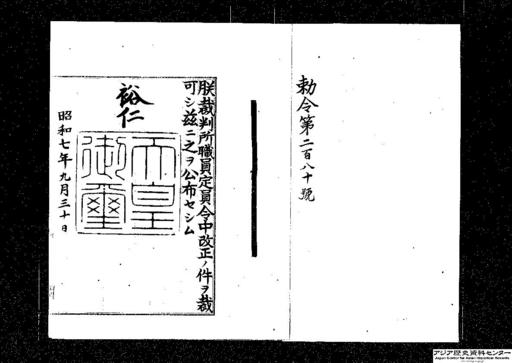 勅令第二百八十號
朕裁判所職員定員令中改正ノ件ヲ裁
可シ茲ニ之ヲ公布セシム
裕仁
天皇
御璽
昭和七年九月三十日
アジア歴史資料センター
Japan Center for Asian Historical Records